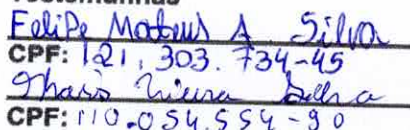 Testemunhas
Felipe Mateus A Silva
CPF: 121.303.734-45
Vieira
CPF: 110.054.554-90